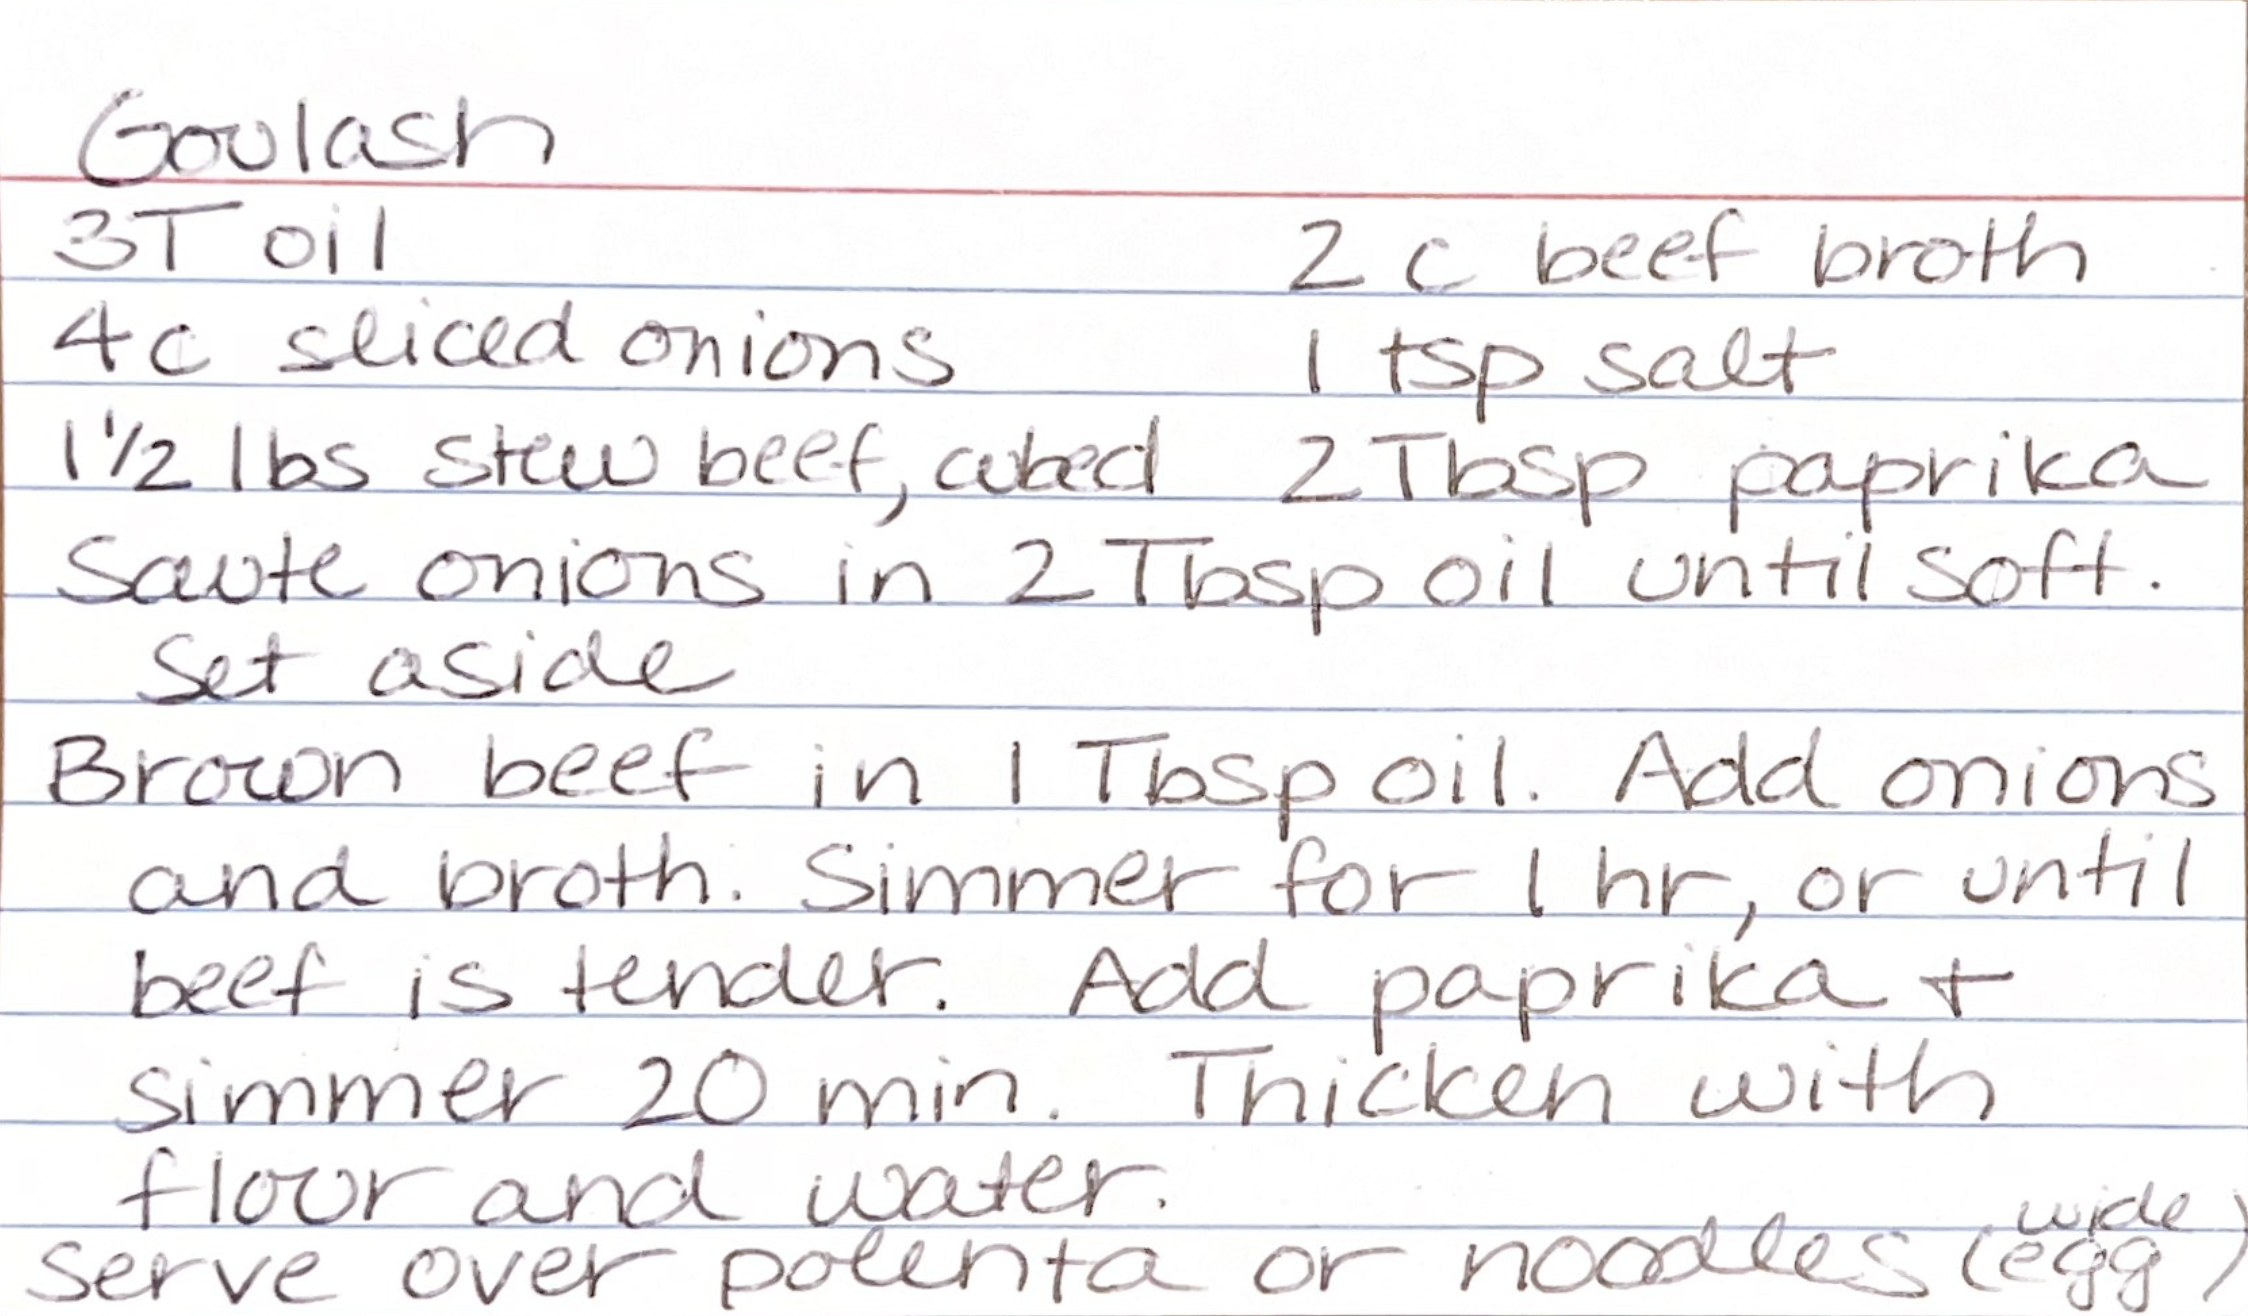 Goulash
3T oil 2 c beef broth
4c sliced onions 1 tsp salt
1 1/2 lbs stew beef, cubed 2 Tbsp paprika
Saute onions in 2 Tbsp oil until soft.
Set aside
Brown beef in 1 Tbsp oil. Add onions
and broth. Simmer for 1 hr, or until
beef is tender. Add paprika +
simmer 20 min. Thicken with
flour and water.
Serve over polenta or noodles (wide egg)